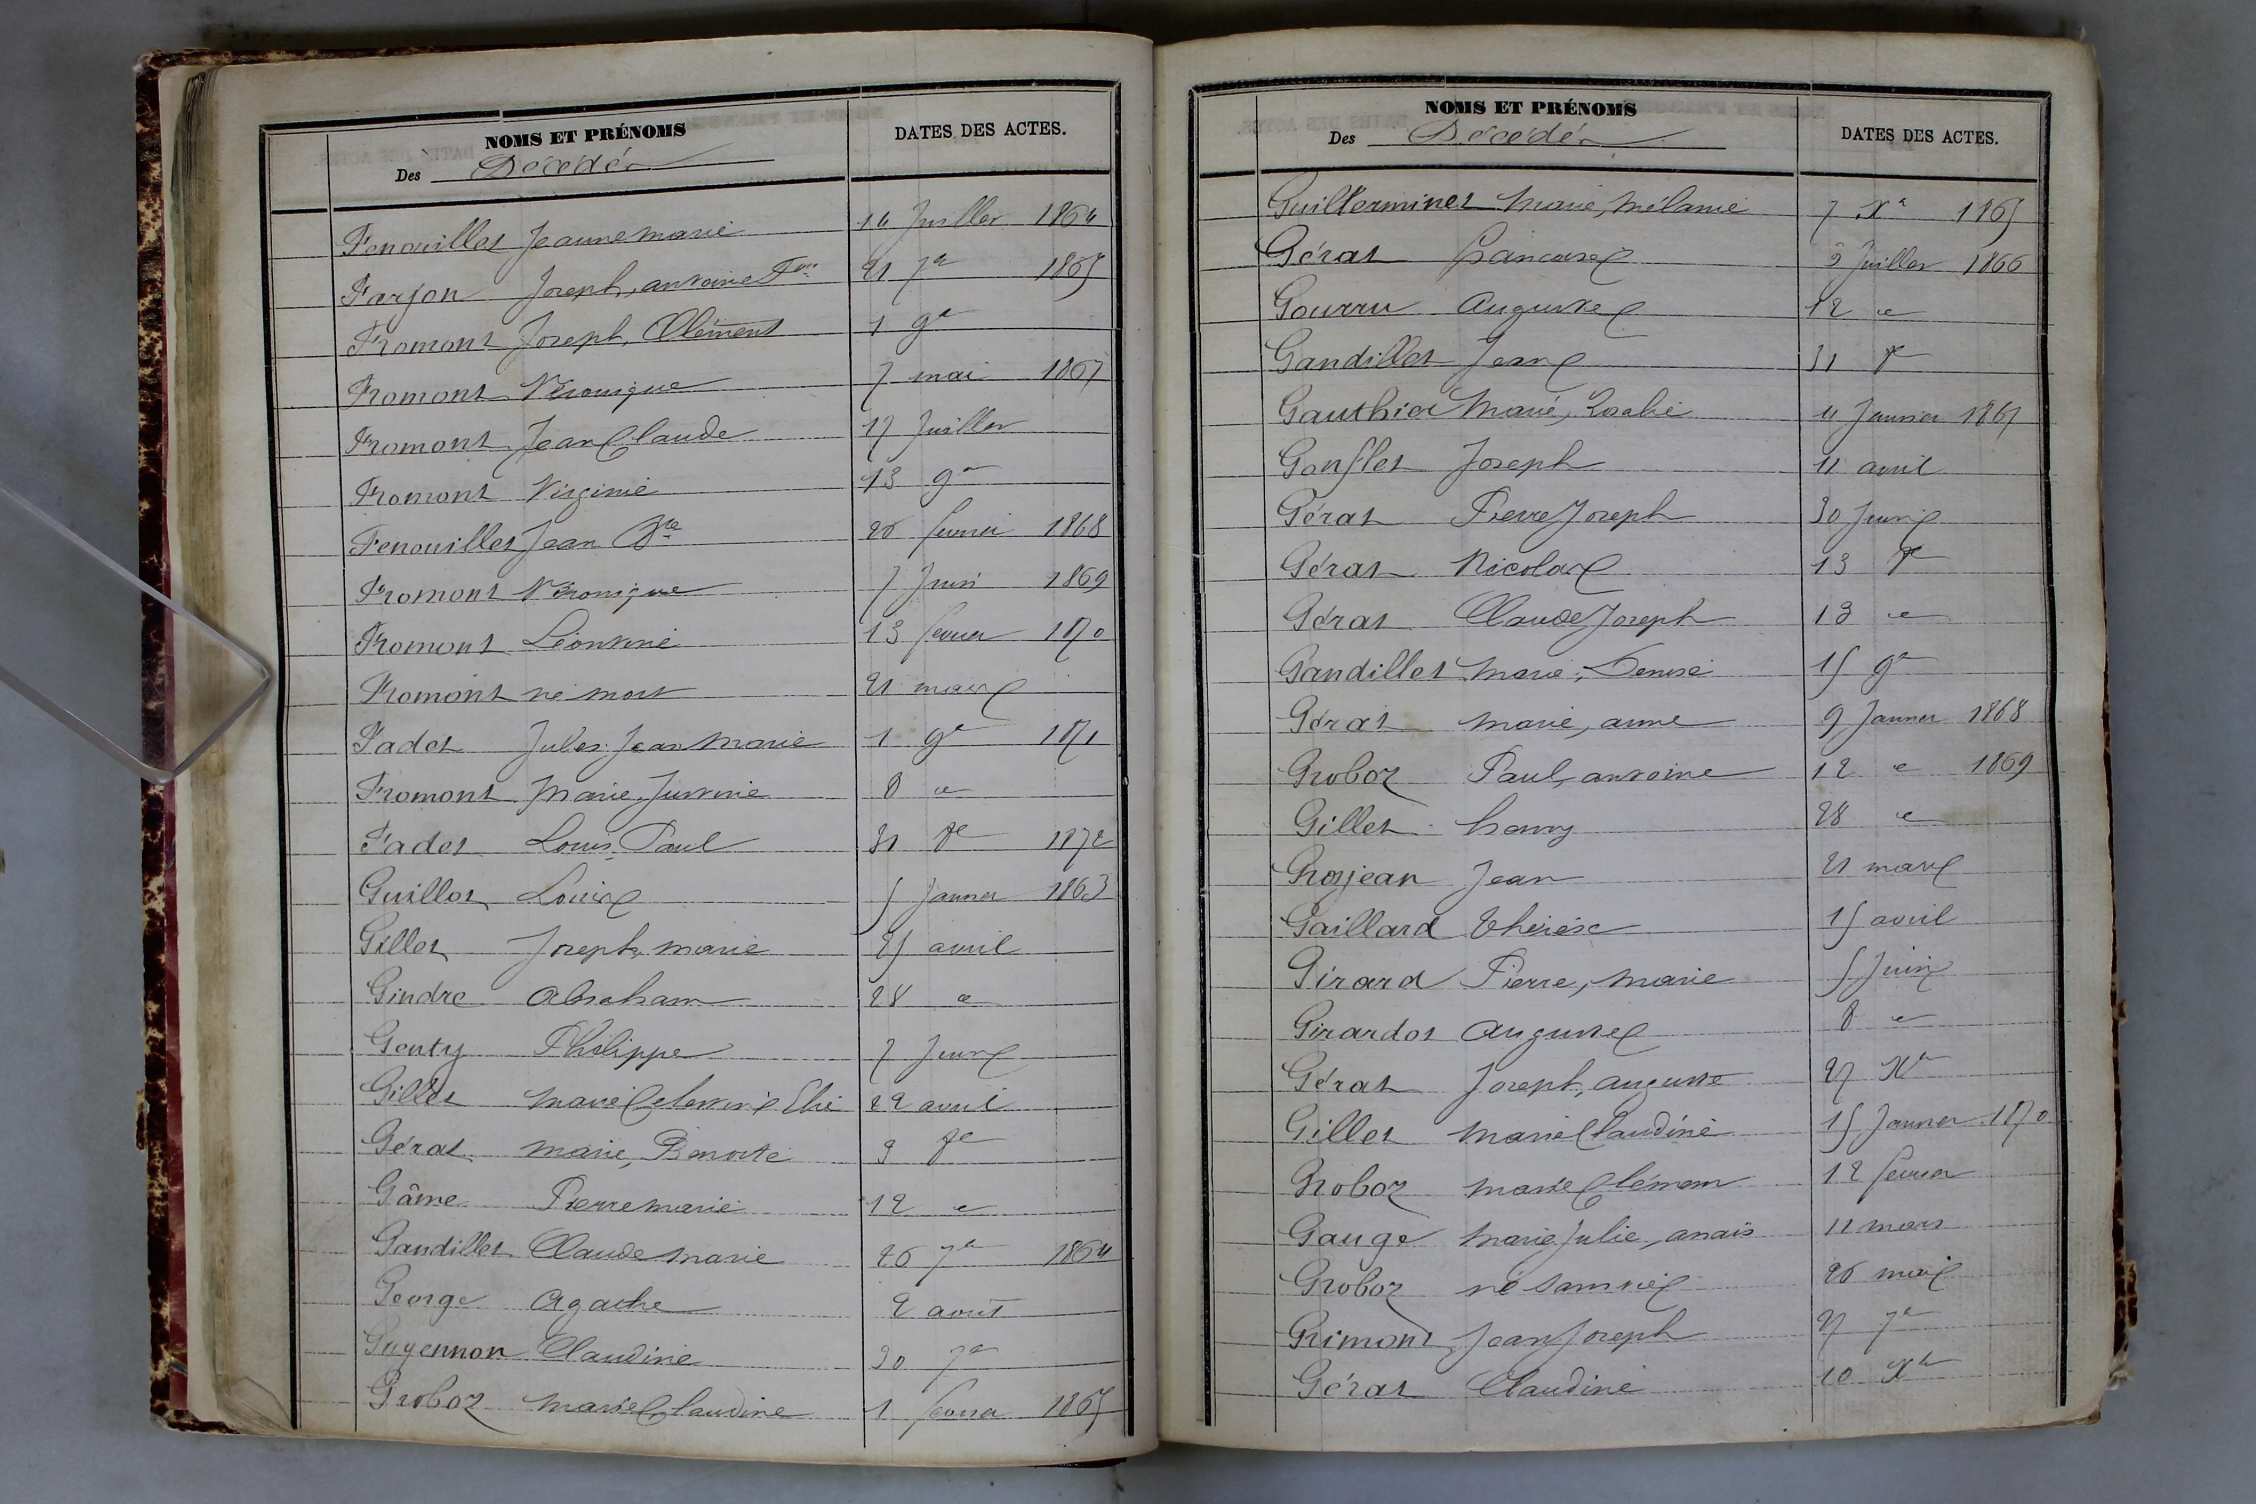 NOMS ET PRÉNOMS
Des Décédés
DATES DES ACTES.
Fenouillet Jeanne marie 14 Juillet 1864
Farjon Joseph, antoine 21 7e 1865
Fromont Joseph, Clément 1 9e
Fromont Véronique 7 mai 1867
Fromont Jean Claude 17 Juillet
Fromont Virginie 13 9e
Fenouillet Jean Bte 26 février 1868
Fromont Véronique 7 Juin 1869
Fromont Léontine 13 février 1870
Fromont né mort 21 mars
Fadet Jules Jean Marie 1 9e 1871
Fromont Marie Justine 8 e
Fadet Louis Paul 31 8e 1872
Guillot Louise 5 Janvier 1863
Gillet Joseph, marie 25 avril
Gindre Abraham 28 e
Genty Philippe 7 Juin
Gillet Marie Célestine 22 avril
Gérat Marie, Benoite 9 8e
Gâme Pierre marie 12 e
Gandillet Claude marie 26 7e 1864
George Agathe 2 août
Guyennon Claudine 30 7e
Groboz Marie Claudine 1 février 1865
NOMS ET PRÉNOMS
Des Décédés
DATES DES ACTES.
Guillerminet Marie, Mélanie 7 Xe 1865
Gérat Françoise 3 Juillet 1866
Gourru Auguste 12 e
Gandillet Jean 31 8e
Gauthier Marie, Rosalie 4 Janvier 1867
Gonflet Joseph 11 avril
Gérat Pierre Joseph 30 Juin
Gérat Nicolas 13 8e
Gérat Claude Joseph 13 e
Gandillet Marie, Denise 15 9e
Gérat marie, anne 9 Janvier 1868
Groboz Paul, antoine 12 e 1869
Gillet 28 e
Grosjean Jean 21 mars
Gaillard Thérèse 15 avril
Girard Pierre, marie 5 Juin
Girardot Auguste 8 e
Gérat Joseph, auguste 27 Xe
Gillet Marie Claudine 15 Janvier 1870
Groboz Marie Clémence 12 février
Gauge Marie Julie, anaïs 11 mars
Groboz né sans vie 26 mai
Grimont Jean Joseph 27 7e
Gérat Claudine 10 Xe